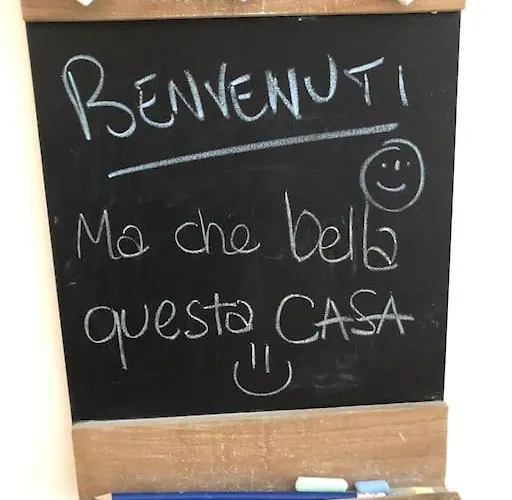 BENVENUTI
Ma che bella
questa CASA